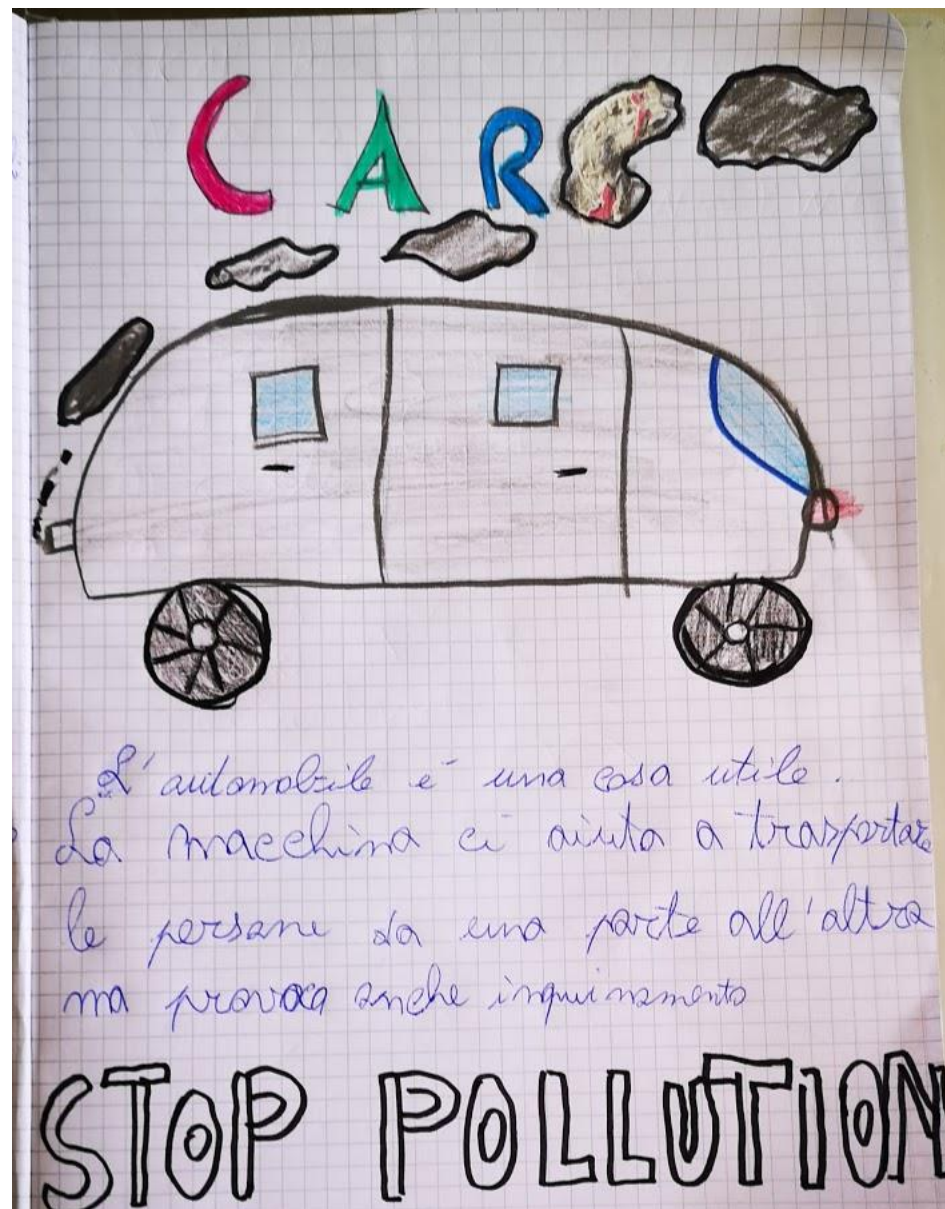 CAR
L'automobile è una cosa utile.
La macchina ci aiuta a trasportare
le persone da una parte all'altra
ma provoca anche inquinamento
STOP POLLUTION